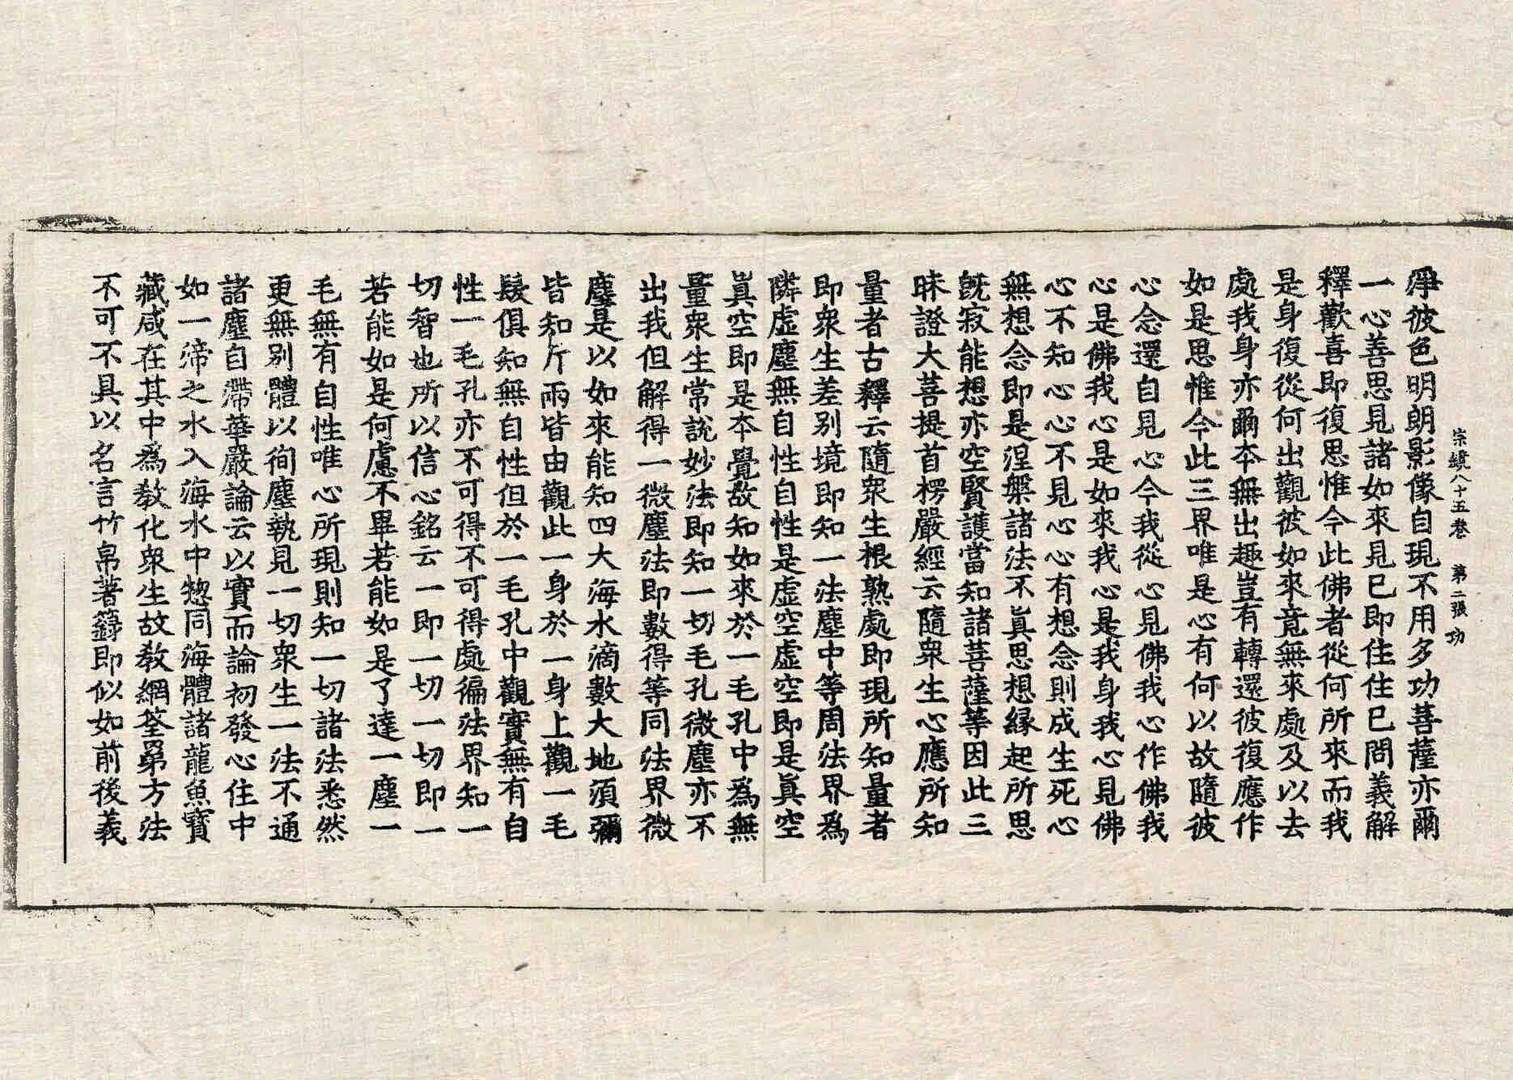 宗鏡八十五卷　第二張　功
淨彼色明朗影像自現不用多功菩薩亦爾
一心善思見諸如來見已即住住已問義解
釋歡喜即復思惟今此佛者從何所來而我
是身復從何出觀彼如來竟無來處及以去
處我身亦爾本無出趣豈有轉還彼復應作
如是思惟今此三界唯是心有何以故隨彼
心念還自見心今我從心見佛我心作佛我
心是佛我心是如來我心是我身我心見佛
心不知心心不見心心有想念則成生死心
無想念即是涅槃諸法不眞思想緣起所思
旣寂能想亦空賢護當知諸菩薩等因此三
昧證大菩提首楞嚴經云隨衆生心應所知
量者古釋云隨衆生根熟處即現所知量者
即衆生差别境即知一法塵中等周法界爲
隣虛塵無自性自性是虛空虛空即是眞空
眞空即是本覺故知如來於一毛孔中爲無
量衆生常說妙法即知一切毛孔微塵亦不
出我但解得一微塵法即數得等同法界微
塵是以如來能知四大海水滴數大地須彌
皆知斤兩皆由觀此一身於一身上觀一毛
髮俱知無自性但於一毛孔中觀實無有自
性一毛孔亦不可得不可得處徧法界知一
切智也所以信心銘云一即一切一切即一
若能如是何慮不畢若能如是了達一塵一
毛無有自性唯心所現則知一切諸法悉然
更無别體以徇塵執見一切衆生一法不通
諸塵自滯華嚴論云以實而論初發心住中
如一渧之水入海水中惣同海體諸龍魚寶
藏咸在其中爲敎化衆生故敎網筌罤方法
不可不具以名言竹帛著籍即似如前後義